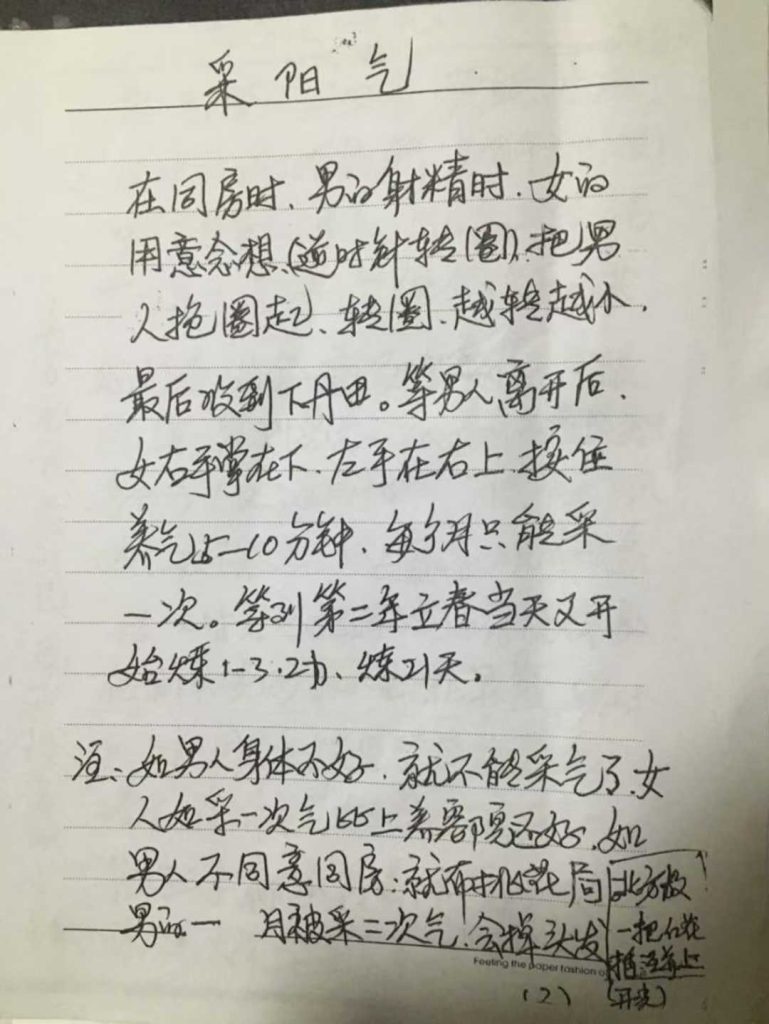 采阳气
在同房时、男的射精时、女的
用意念想、(逆时针转圈)、把男
人抱圈起、转圈、越转越小、
最后收到下丹田。等男人离开后、
女右手掌在下、左手在右上、按住
养气5—10分钟、每个月只能采
一次。等到第二年立春当天又开
始炼1-3.2功、炼21天。
注：如男人身体不好、就不能采气了、女
人如采一次气比上美容院还好、如
男人不同意同房：就布桃花局
男的一 月被采二次气、会掉头发
北方放
一把红花
插 上
(2)
Feeling the paper fashion o